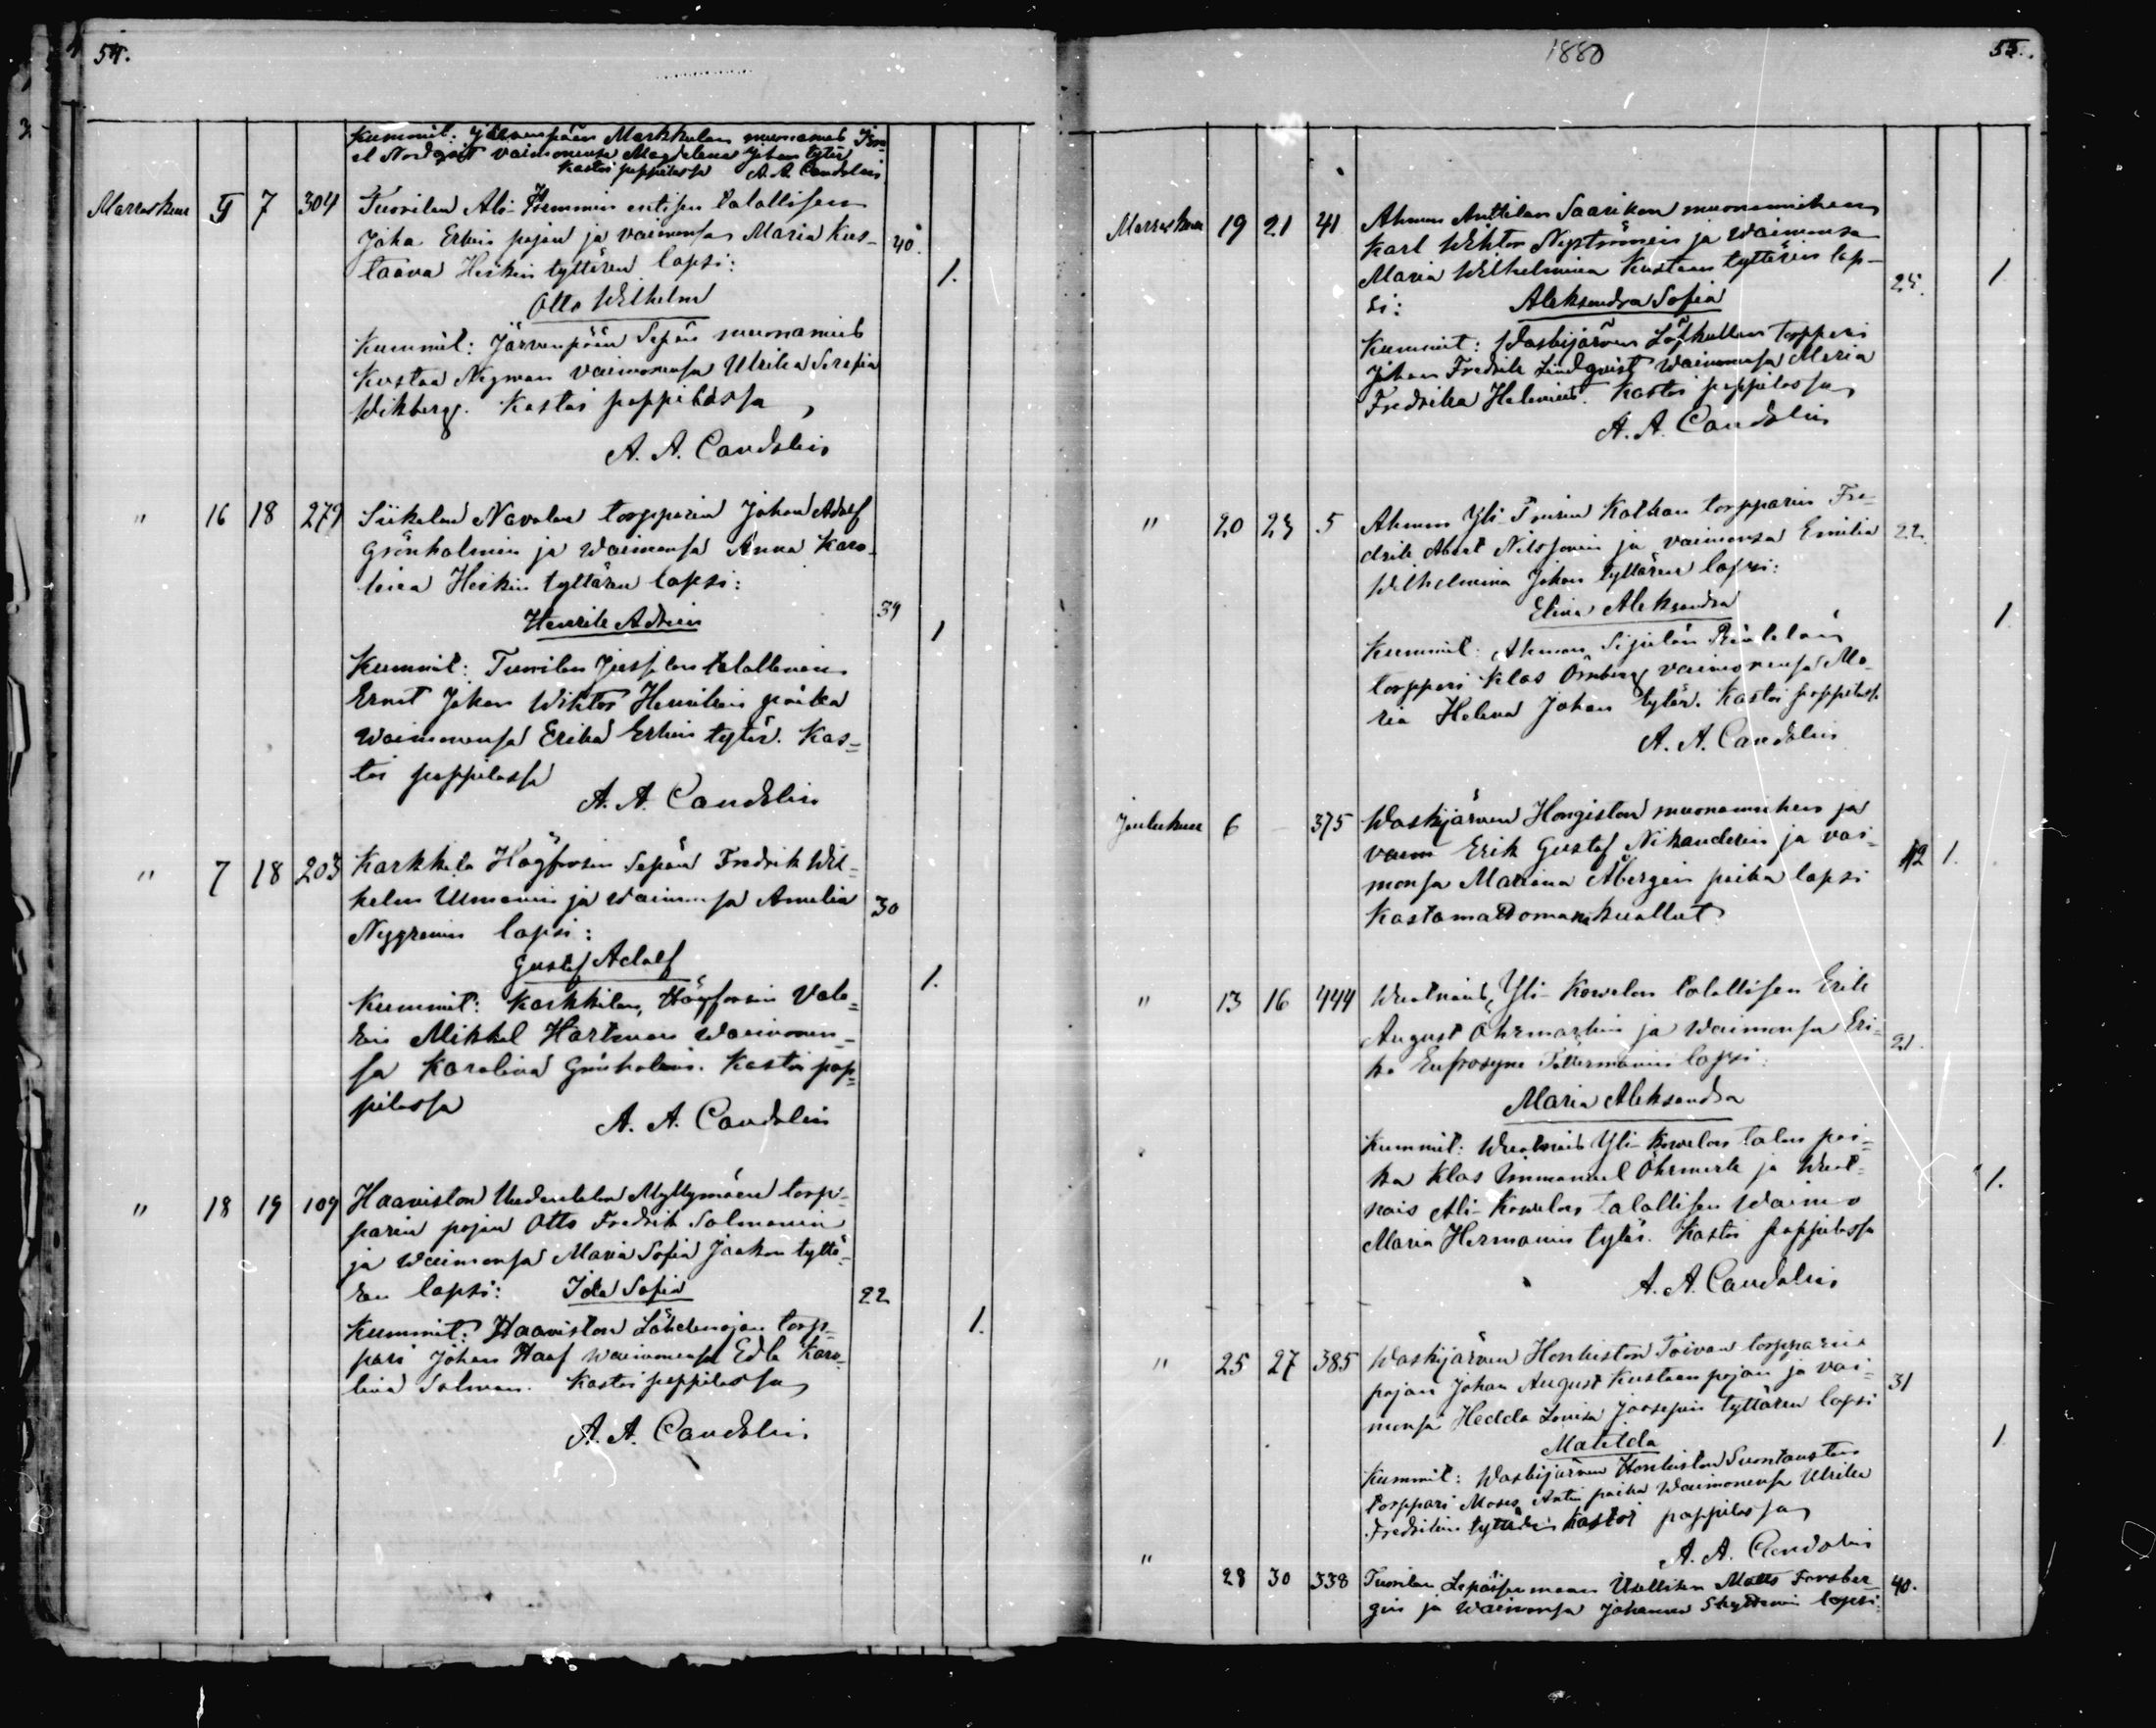 54.
Kummit: Järvenpään Markkulan muonamies
Nordqvist vaimonensa Magdalena Johan tytär
Kastoi pappilassa A. A. Candolin
Marraskuu 5 7 304 Tuorilan Ali-Hemmin entisen talallisen
Joha Erkin pojan ja vaimonsa Maria Kus- 40.
taava Heikin tyttären lapsi: 1.
Otto Wilhelm
Kummit: Järvenpään Sepän muonamies
Kustaa Nyman vaimonensa Ulrika Serafia
Wikberg. Kastoi pappilassa
A. A. Candolin
" 16 18 279 Siikalan Navalan torpparin Johan Adolf
Grönholmin ja waimonsa Anna Karo-
liina Heikin tyttären lapsi:
Henrik Adrien 39 1
Kummit: Tuorilan Jussilan talallinen
Ernst Johan Wiktor Henrikin poika
Waimonensa Erika Erkin tytär. Kas-
toi pappilassa
A. A. Candolin
" 7 18 203 Karkkila Högforsin Sepän Fredrik Wil-
helm Ulmanin ja Waimonsa Amelia 30
Nygrenin lapsi:
Gustaf Adolf 1.
Kummit: Karkkilan, Högforsin Vala-
rin Mikkel Hartman Waimonen-
sa Karolina Grönholmin. Kastoi pap-
pilassa
A. A. Candolin
" 18 19 109 Haaviston Uudentalon Myllymäen torp-
parin pojan Otto Fredrik Salmenin
ja Waimonsa Maria Sofia Jaakon tyttä-
ren lapsi: Ida Sofia 22
Kummit: Haaviston Lähdenojan torp- 1.
pari Johan Haaf waimonensa Edla Karo-
lina Salmen. Kastoi pappilassa
A. A. Candolin
1880
55.
Marraskuu 19 21 41 Ahmon Anttilan Saarikon muonamiehen
Karl Wiktor Nyströmin ja Waimonsa
Maria Wilhelmina Kustaan tyttären lap- 25. 1
si: Aleksandra Sofia
Kummit: Waskijärven Löfkullan torppari
Johan Fredrik Lindqvist Waimonensa Maria
Fredrika Helenius. Kastoi pappilassa
A. A. Candolin
" 20 23 5 Ahmon Yli-Knuun Kalkan torpparin Fre-
drik Albert Nilssonin ja vaimonsa Emilia 22.
Wilhelmina Johan tyttären lapsi:
Elina Aleksandra 1.
Kummit: Ahmon Sipilän
torppari Klas Örnberg vaimonensa Ma-
ria Helena Johan tytär. Kastoi pappilassa
A. A. Candolin
Joulukuu 6 – 375 Waskijärven Hongiston muonamiehen ja
Erik Gustaf Nikanderin ja vai- 42 1.
monsa Mariana Åbergin poika lapsi
Kastamattomana kuollut
" 13 16 444 Yli-Kowelan talallisen Erik
August Öhrmarkin ja Waimonsa Eri- 21.
ka Eufrosyne Tallermanin lapsi:
Maria Aleksandra
Kummit: Yli-Kowelan talon poi-
ka Klas Immanuel Öhrmark ja
nais Ali-Kowelan talallisen Waimo 1.
Maria Hermanin tytär. Kastoi pappilassa
A. A. Candolin
" 25 27 385 Waskijärven Honkiston Toivan torpparin
pojan Johan August Kustaan pojan ja vai- 31
monsa Hedda Lovisa Joosepin tyttären lapsi
Matilda 1
Kummit: Waskijärven Honkiston Suontaustan
torppari Moses Antin poika Waimonensa Ulrika
Fredrikin tyttären Kastoi pappilassa
A. A. Candolin
" 28 30 338 Tuorilan Itsellisen Matts Forsber- 40.
gin ja Waimonsa Johanna lapsi: